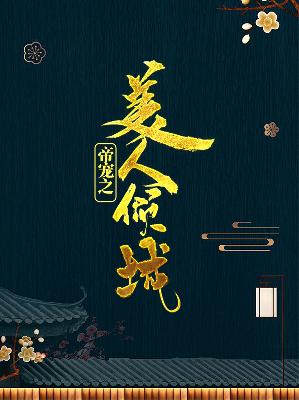 帝宠之
美人倾城